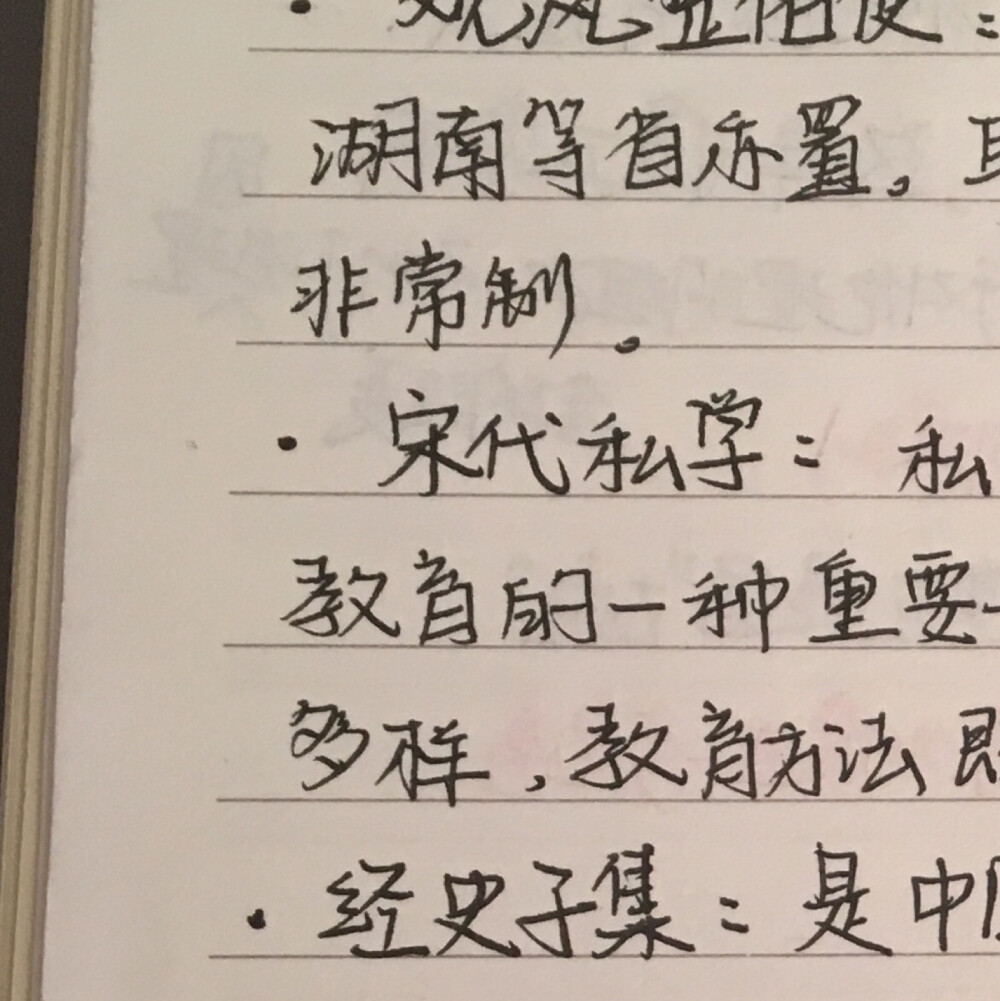 · 观风整俗使：
湖南等省亦置。
非常制。
· 宋代私学：私
教育的一种重要
多样，教育方法即
· 经史子集：是中